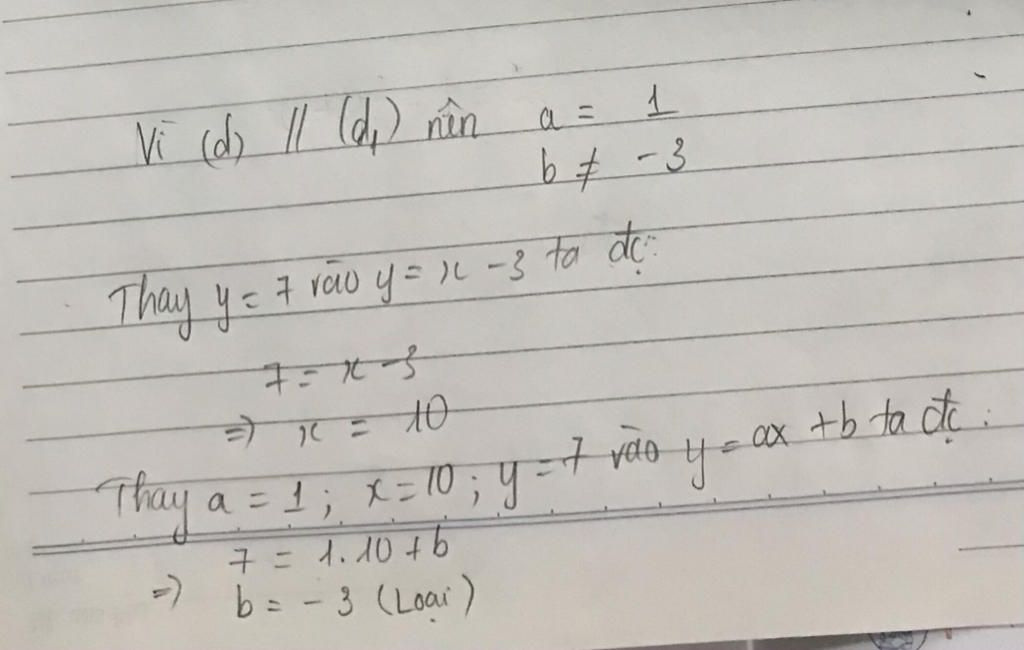 Vì (d) // (d₁) nên a = 1
b ≠ -3
Thay y = 7 vào y = x - 3 ta đc:
7 = x - 3
=> x = 10
Thay a = 1; x = 10; y = 7 vào y = ax + b ta đc:
7 = 1.10 + b
=> b = - 3 (Loại)